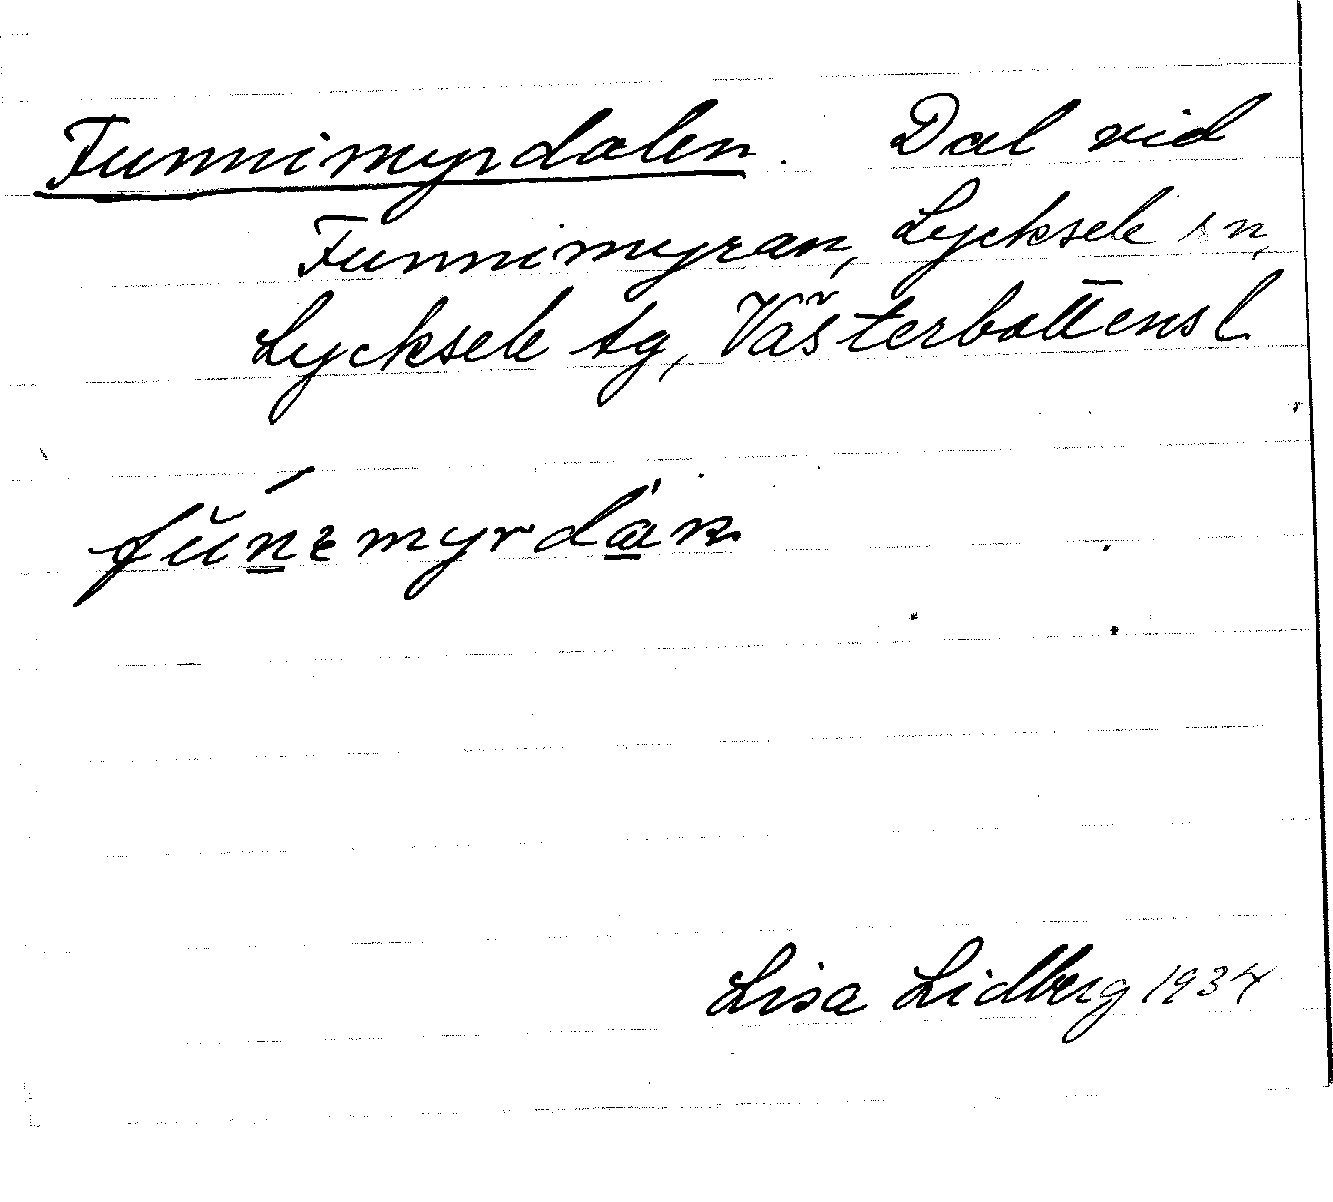 Funnimyrdalen. Dal vid
Funnimyran, Lycksele sn,
Lycksele tg, Västerbottens l.
Lisa Lidberg 1934